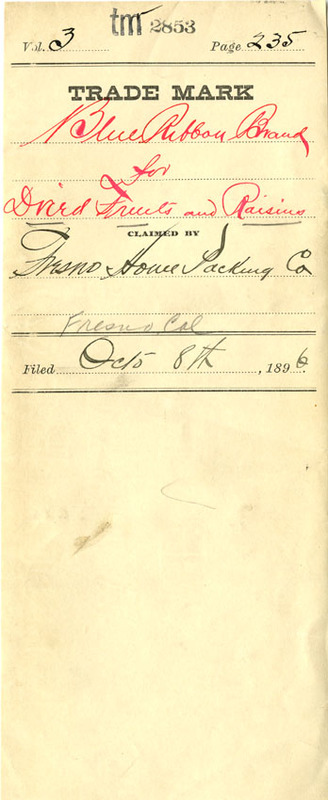 tm 2853
Vol. 3 Page 235
TRADE MARK
Blue Ribbon Brand
for
Dried Fruits and Raisins
CLAIMED BY
Fresno Home Packing Co
Fresno Cal
Filed Oct 8th, 1896